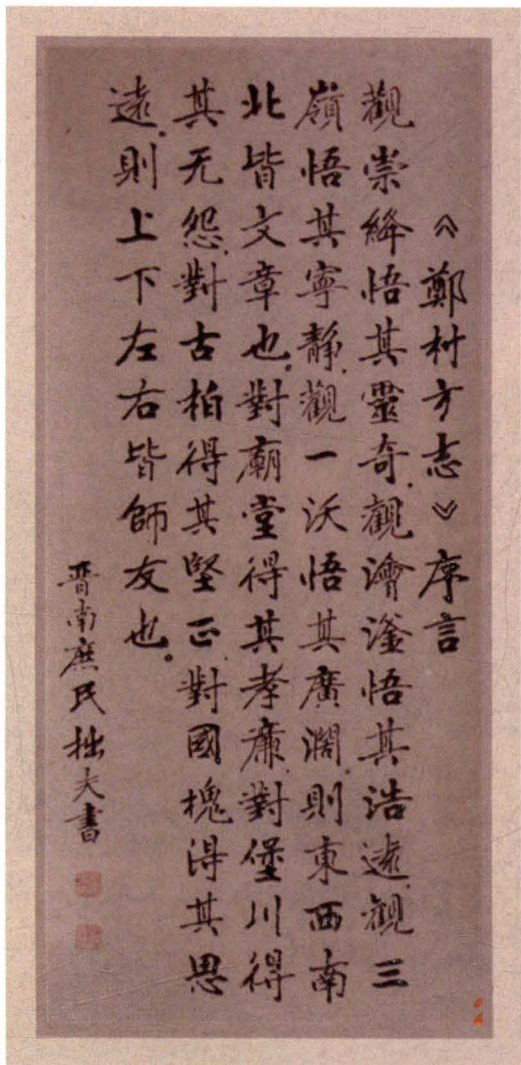 《鄭村方志》序言
觀崇絳悟其靈奇.觀澮滏悟其浩遠.觀三
嶺悟其寧靜.觀一沃悟其廣濶.則東西南
北皆文章也.對廟堂得其孝廉.對堡川得
其无怨.對古柏得其堅正.對國槐得其思
遠.則上下左右皆師友也。
晋南庶民拙夫書